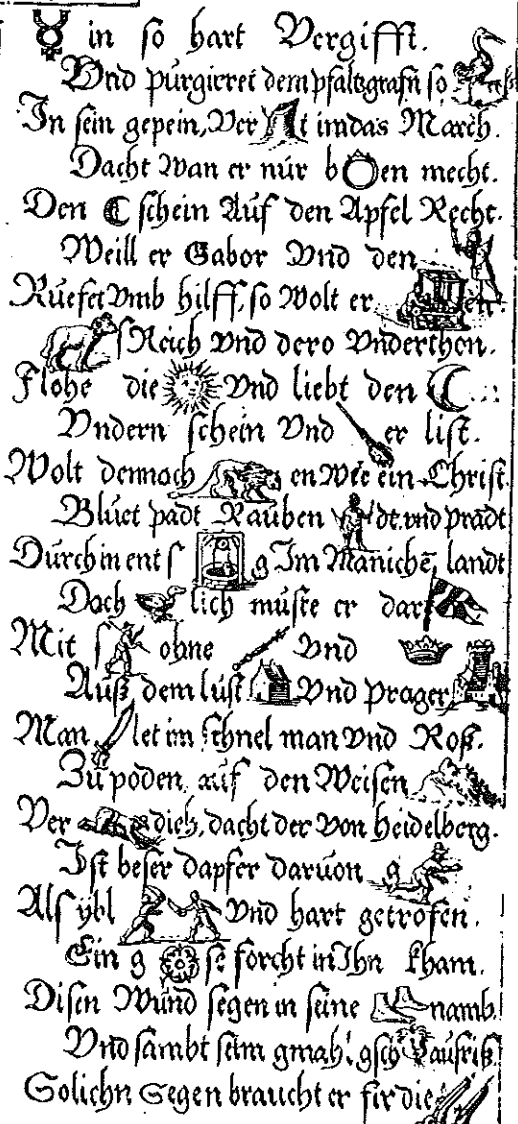 in so hart Vergifft.
Vnd purgieret dem pfaltzgrafn so
In sein gepein, Ver t im das March.
Dacht Wan er nur b en mecht.
Den schein Auf den Apfel Recht.
Weill er Gabor Vnd den
Ruefet Vmb hilff, so Wolt er en.
s Reich Vnd dero Vnderthon.
Flohe die Vnd liebt den
Vndern schein Vnd er list.
Wolt dennoch en Wie ein Christ.
Bluet padt Rauben dt. vnd pradt
Durch in ent s g Im Manichē landt
Doch lich muste er dar
Mit s ohne Vnd
Auß dem lust Vnd Prager
Man let im schnel man Vnd Roß.
Zu poden, auf den Weisen
Ver dich, dacht der Von Heidelberg.
Ist beser dapfer daruon g
Als ybl Vnd hart getrofen.
Ein g se forcht in Ihn kham.
Disen Wund segen in seine namb.
Vnd sambt seim gmahl gsch aufriß
Solichn Segen braucht er fir die